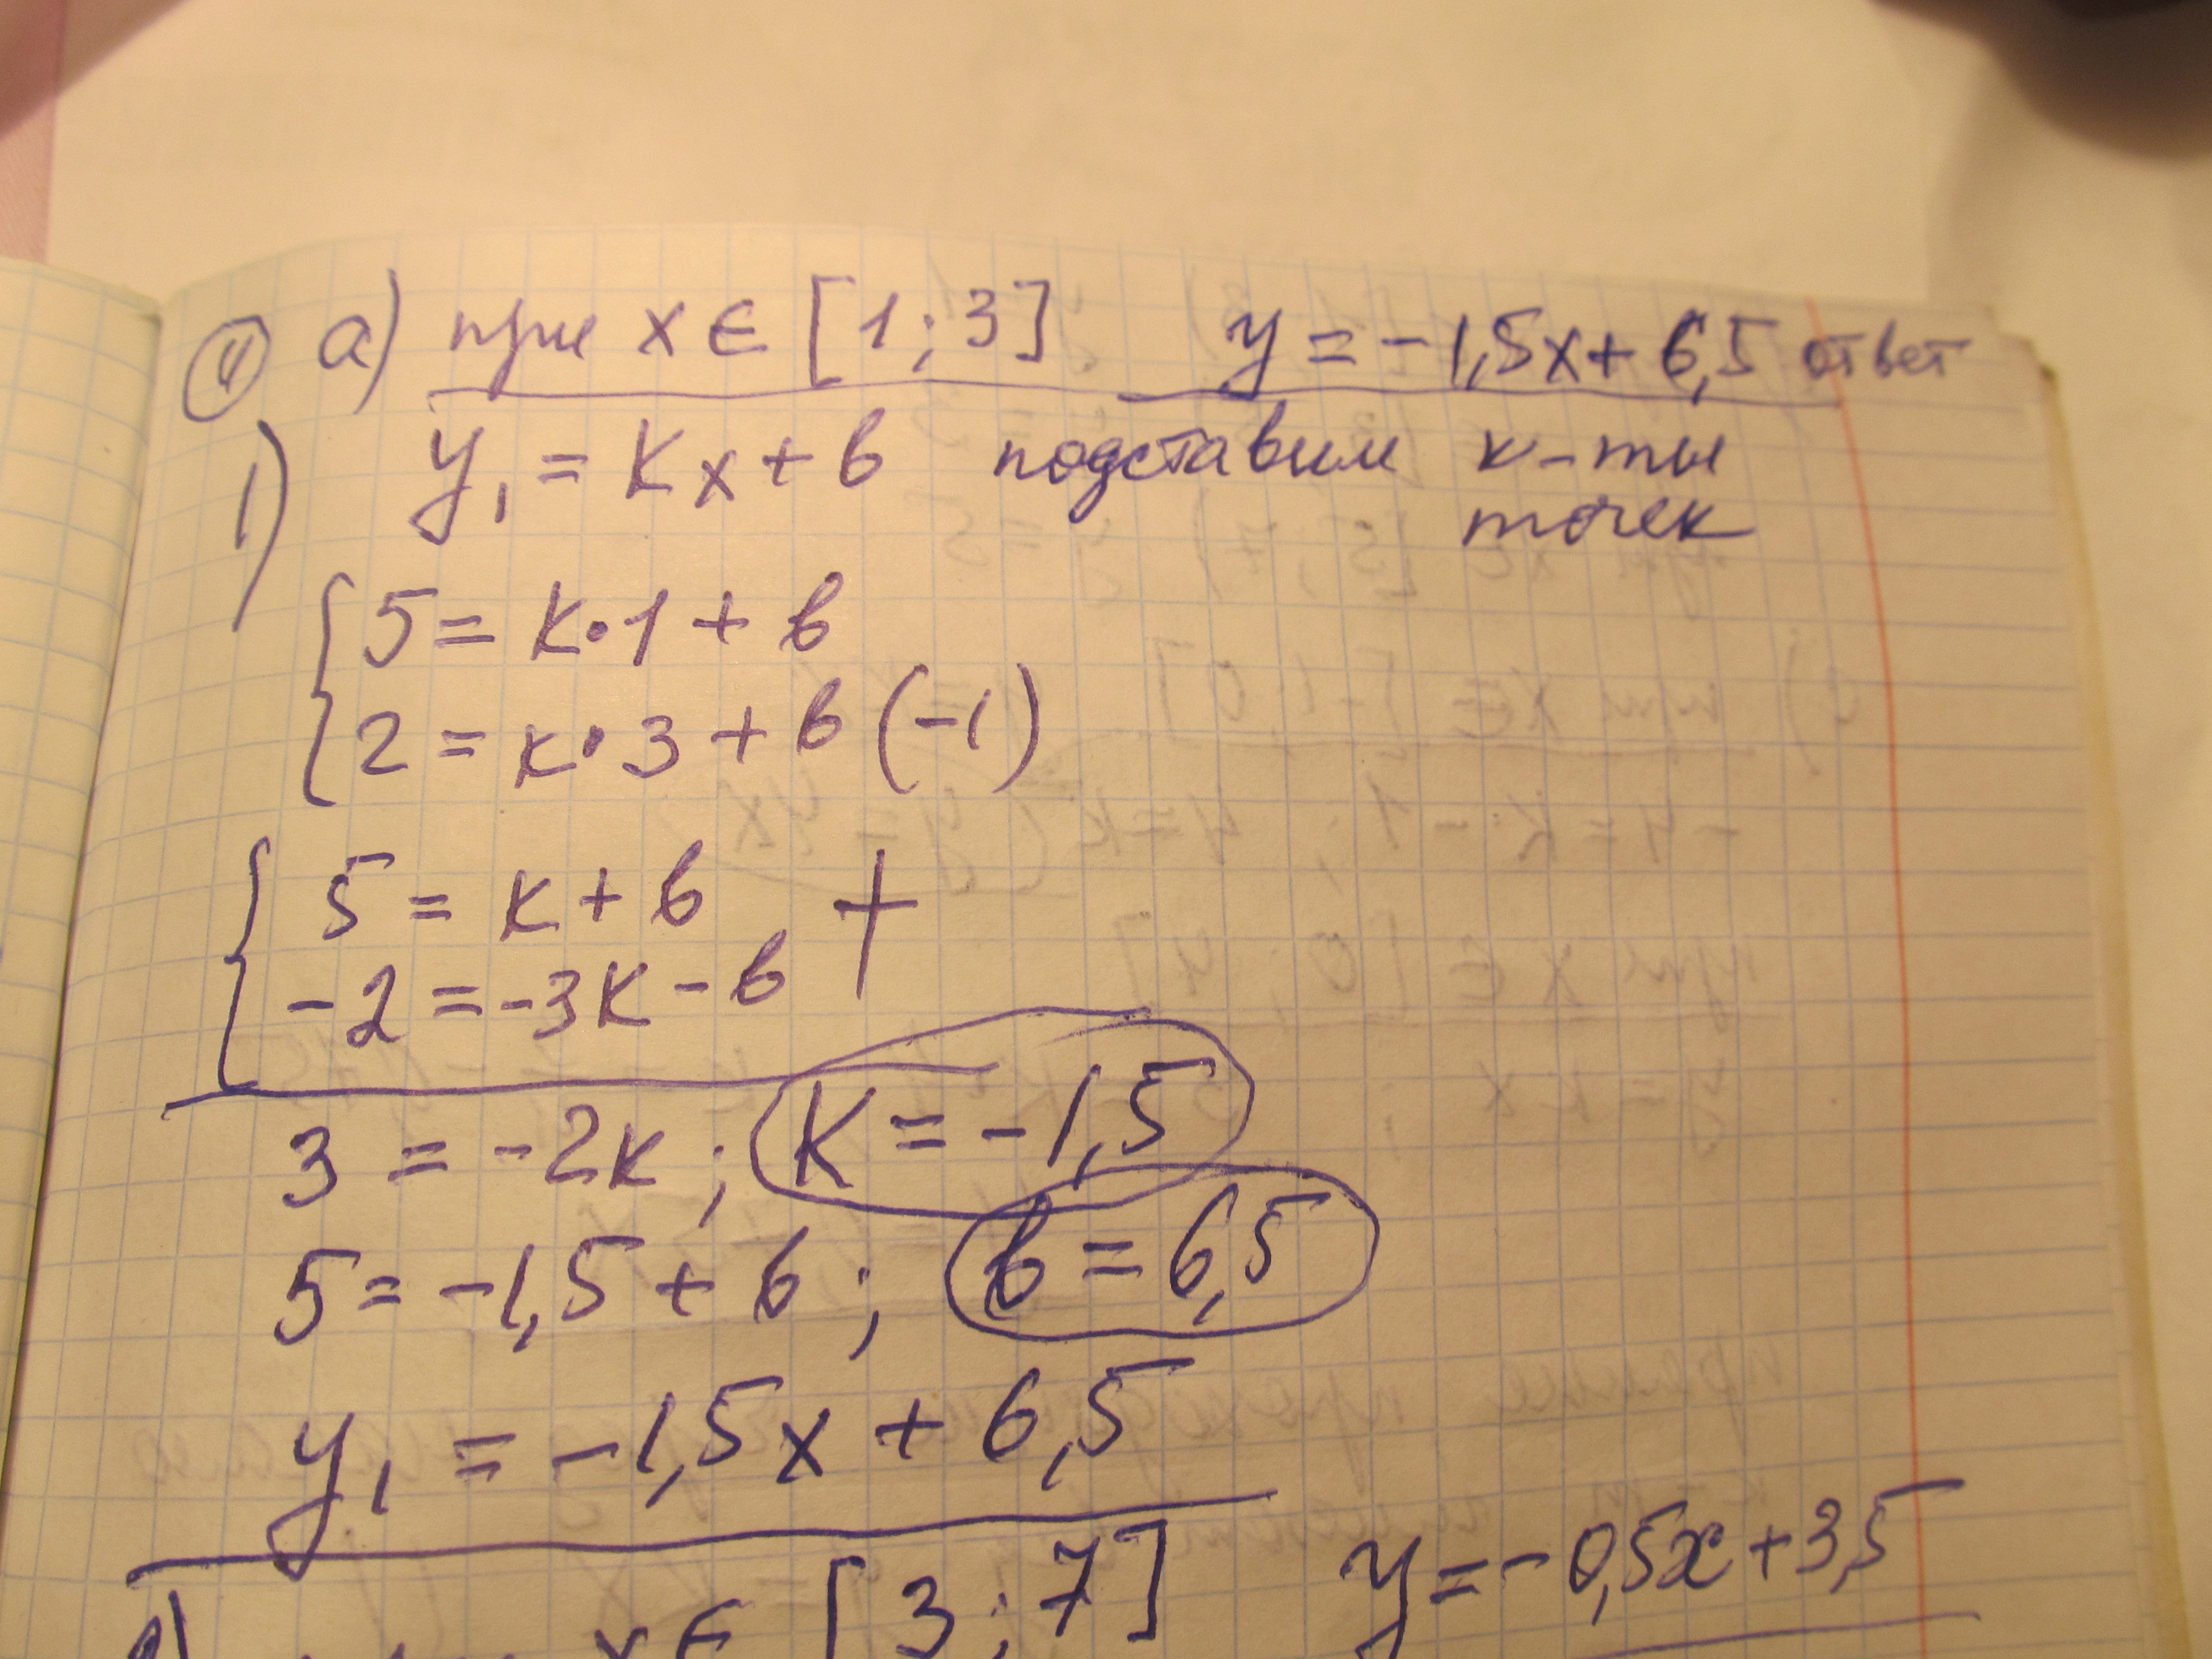 ④ а) при x ∈ [1; 3] y = -1,5x + 6,5 ответ
1) y₁ = kx + b подставим к-ты
точек
5 = k·1 + b
2 = k·3 + b (-1)
5 = k + b +
-2 = -3k - b
3 = -2k; k = -1,5
5 = -1,5 + b; b = 6,5
y₁ = -1,5x + 6,5
x ∈ [3; 7] y = -0,5x + 3,5